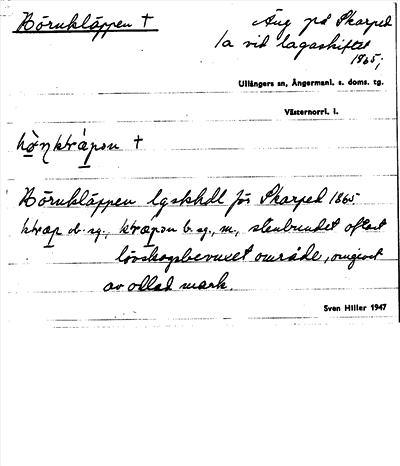 Börnkläppen †
Äng på Skarped
1a vid lagaskiftet
1865;
Ullångers sn, Ångermanl. s. doms. tg.
Västernorrl. l.
†
Börnkläppen lgskhdl för Skarped 1865
ob. sg., b. sg., m., stenbundet oftast
lövskogsbevuxet område, omgivet
av odlad mark.
Sven Hiller 1947